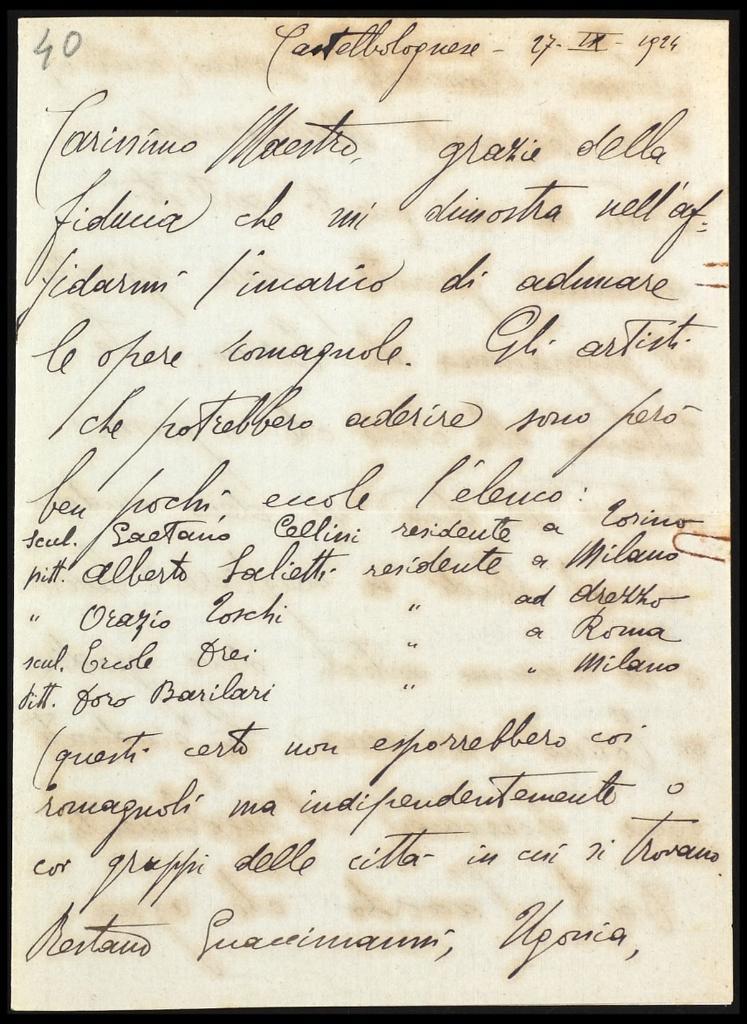 40
Castelbolognese - 27 - IX - 1924
Carissimo Maestro, grazie della
fiducia che mi dimostra nell'af=
fidarmi l'incarico di adunare
le opere romagnole. Gli artisti
che potrebbero aderire sono però
ben pochi, eccole l'elenco:
scul. Gaetano Cellini residente a Torino
pitt. Alberto Salietti residente a Milano
" Orazio Toschi " ad Arezzo
scul. Ercole Drei " a Roma
Pitt. Doro Barilari " " Milano
(questi certo non esporrebbero coi
romagnoli ma indipendentemente o
coi gruppi delle città in cui si trovano.
Restano Guaccimanni, Ugonia,